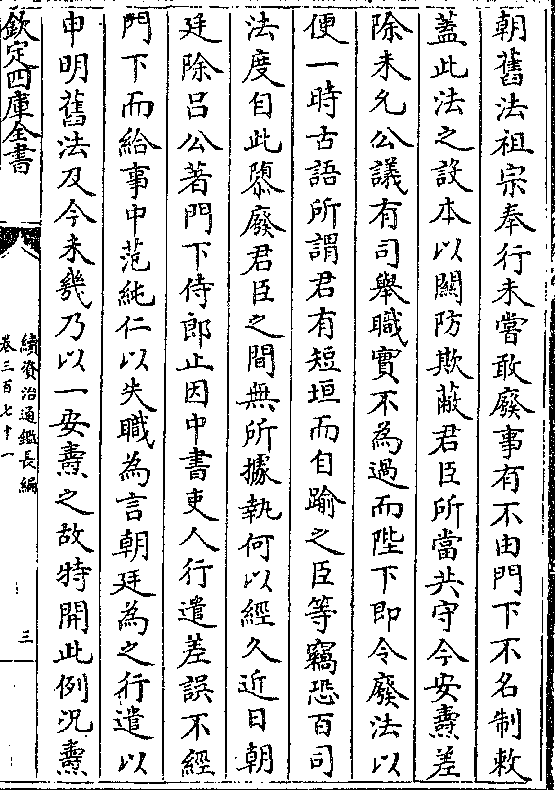 朝舊法祖宗奉行未嘗敢廢事有不由門下不名制敕
蓋此法之設本以關防欺蔽君臣所當共守今安燾差
除未允公議有司舉職實不為過而陛下即令廢法以
便一時古語所謂君有短垣而自踰之臣等竊恐百司
法度自此隳廢君臣之間無所據執何以經久近日朝
廷除呂公著門下侍郎止因中書吏人行遣差誤不經
門下而給事中范純仁以失職為言朝廷為之行遣以
申明舊法及今未幾乃以一安燾之故特開此例況燾
欽定四庫全書
續資治通鑑長編
卷三百七十一
三